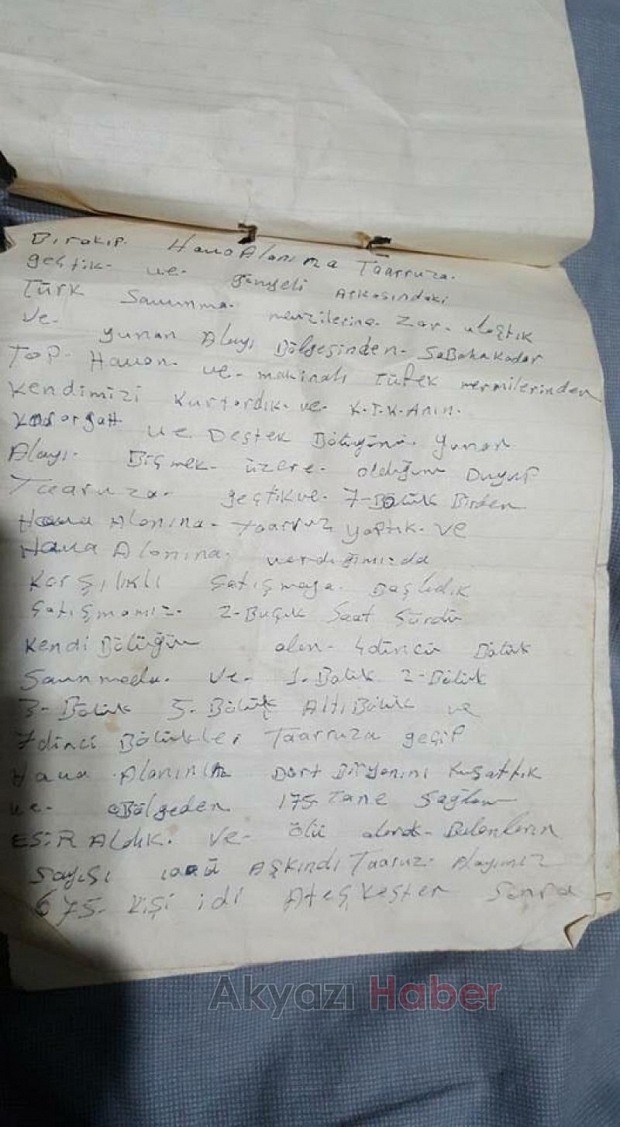 Bırakıp. Hava Alanına Taarruza.
geçtik. ve. gönyeli Arkasındaki
Türk Savunma. mevzilerine. zor. ulaştık
ve. yunan Alayı Bölgesinden. SaBaha kadar
Top. Havan. ve. makinalı tüfek mermilerinden
kendimizi kurtardık. ve. K.T.K.Anın.
ve Destek Bölüğünü. yunan
Alayı. Biçmek. üzere. olduğunu Duyup
Taaruza. geçtik ve. 7-Bölük Birden
Hava Alanına. Taarruz yaptık. ve
Hava Alanına. vardığımızda
karşılıklı çatışmaya. Başladık
çatışmamız. 2-Buçuk Saat Sürdü
kendi Bölüğüm olan. 4dürücü Bölük
Savunmada. ve. 1.Bölük 2-Bölük
3-Bölük 5.Bölük Altı Bölük ve
7dinci Bölükler Taarruza geçip
Hava Alanının Dört Bir yanını kuşattık
ve. oBölgeden 175 Tane Sağlam
ESiR Aldık. ve. ölü olarak. Bulunanların
Sayısı Aşkındı Taaruz. Alayımız
675. kişi idi Ateşkesten Sonra
Akyazı Haber